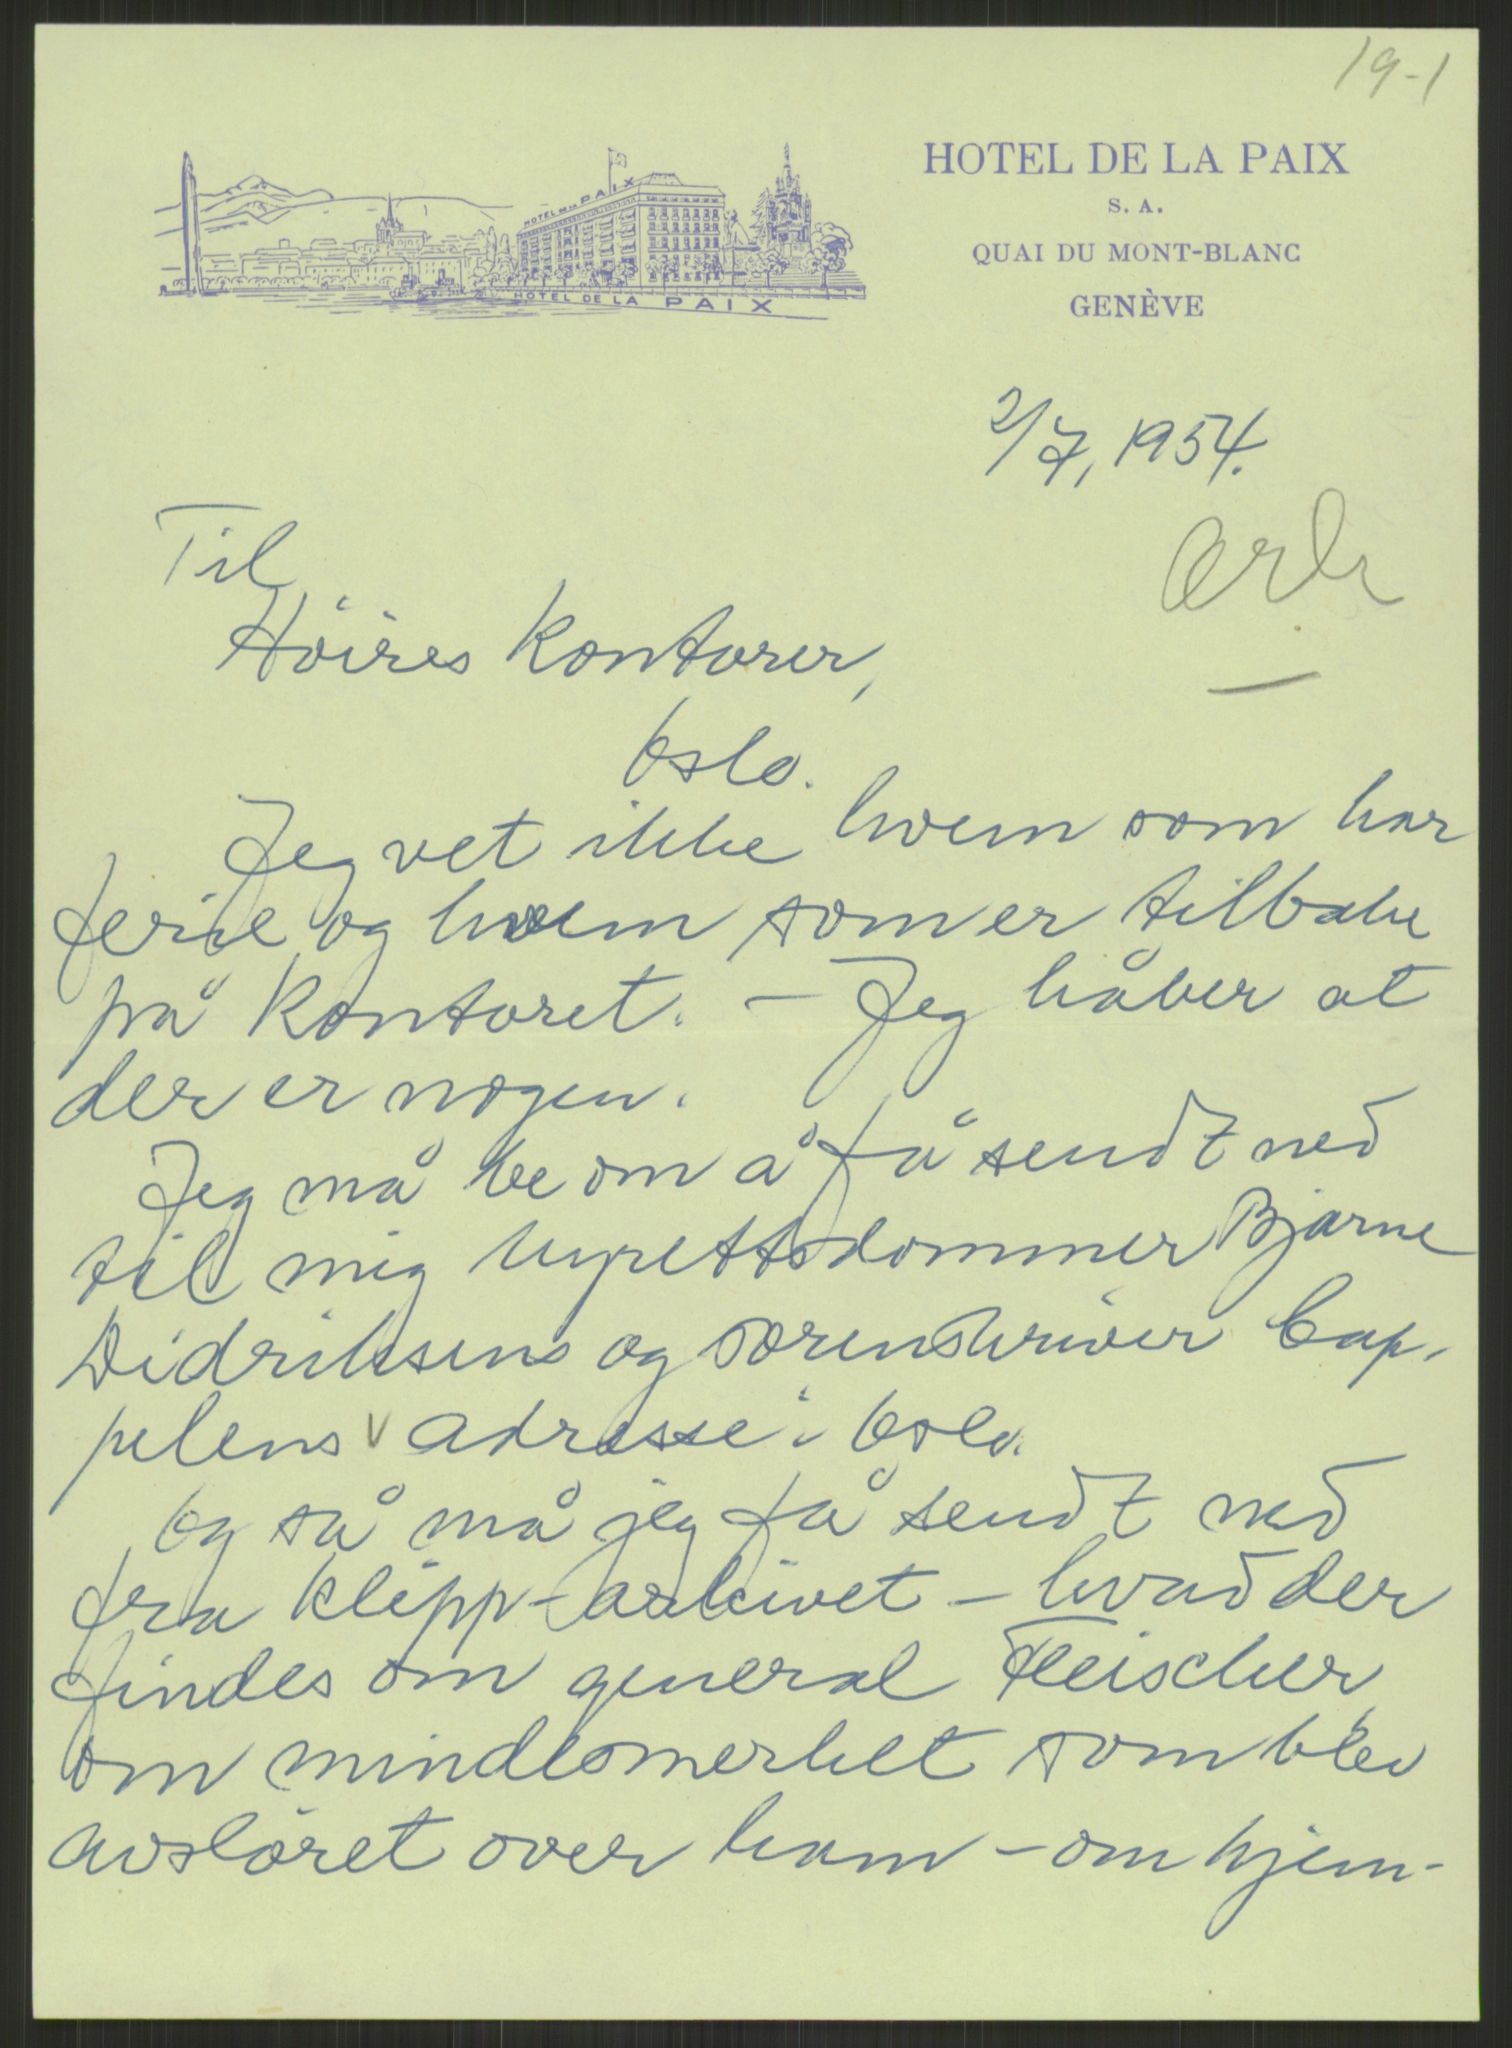 19-1
HOTEL DE LA PAIX
S. A.
QUAI DU MONT-BLANC
GENÈVE
HOTEL DE LA PAIX
HOTEL DE LA PAIX
2/7, 1954.
Ark
Til
Höires Kontorer,
Oslo.
Jeg vet ikke hvem som har
ferie og hvem som er tilbake
på Kontoret. – Jeg håber at
der er nogen.
Jeg må be om å få sendt ned
til mig byrettsdommer Bjarne
Didriksens og sorenskriver Cap-
pelens adresse i Oslo.
Og så må jeg få sendt ned
fra klipp-arkivet – hvad der
findes om general Fleischer,
om mindesmerket som blev
avsløret over ham – om hjem-